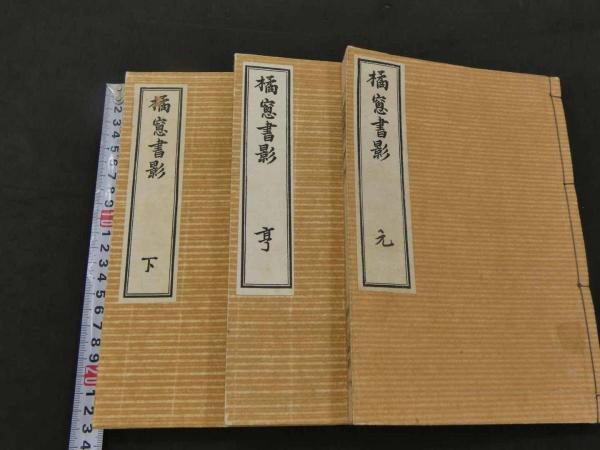 橘窻書影 元
橘窻書影 亨
橘窻書影 下
2 3 4 5 6 7 8 9 10 1 2 3 4 5 6 7 8 9 20 1 2 3 4